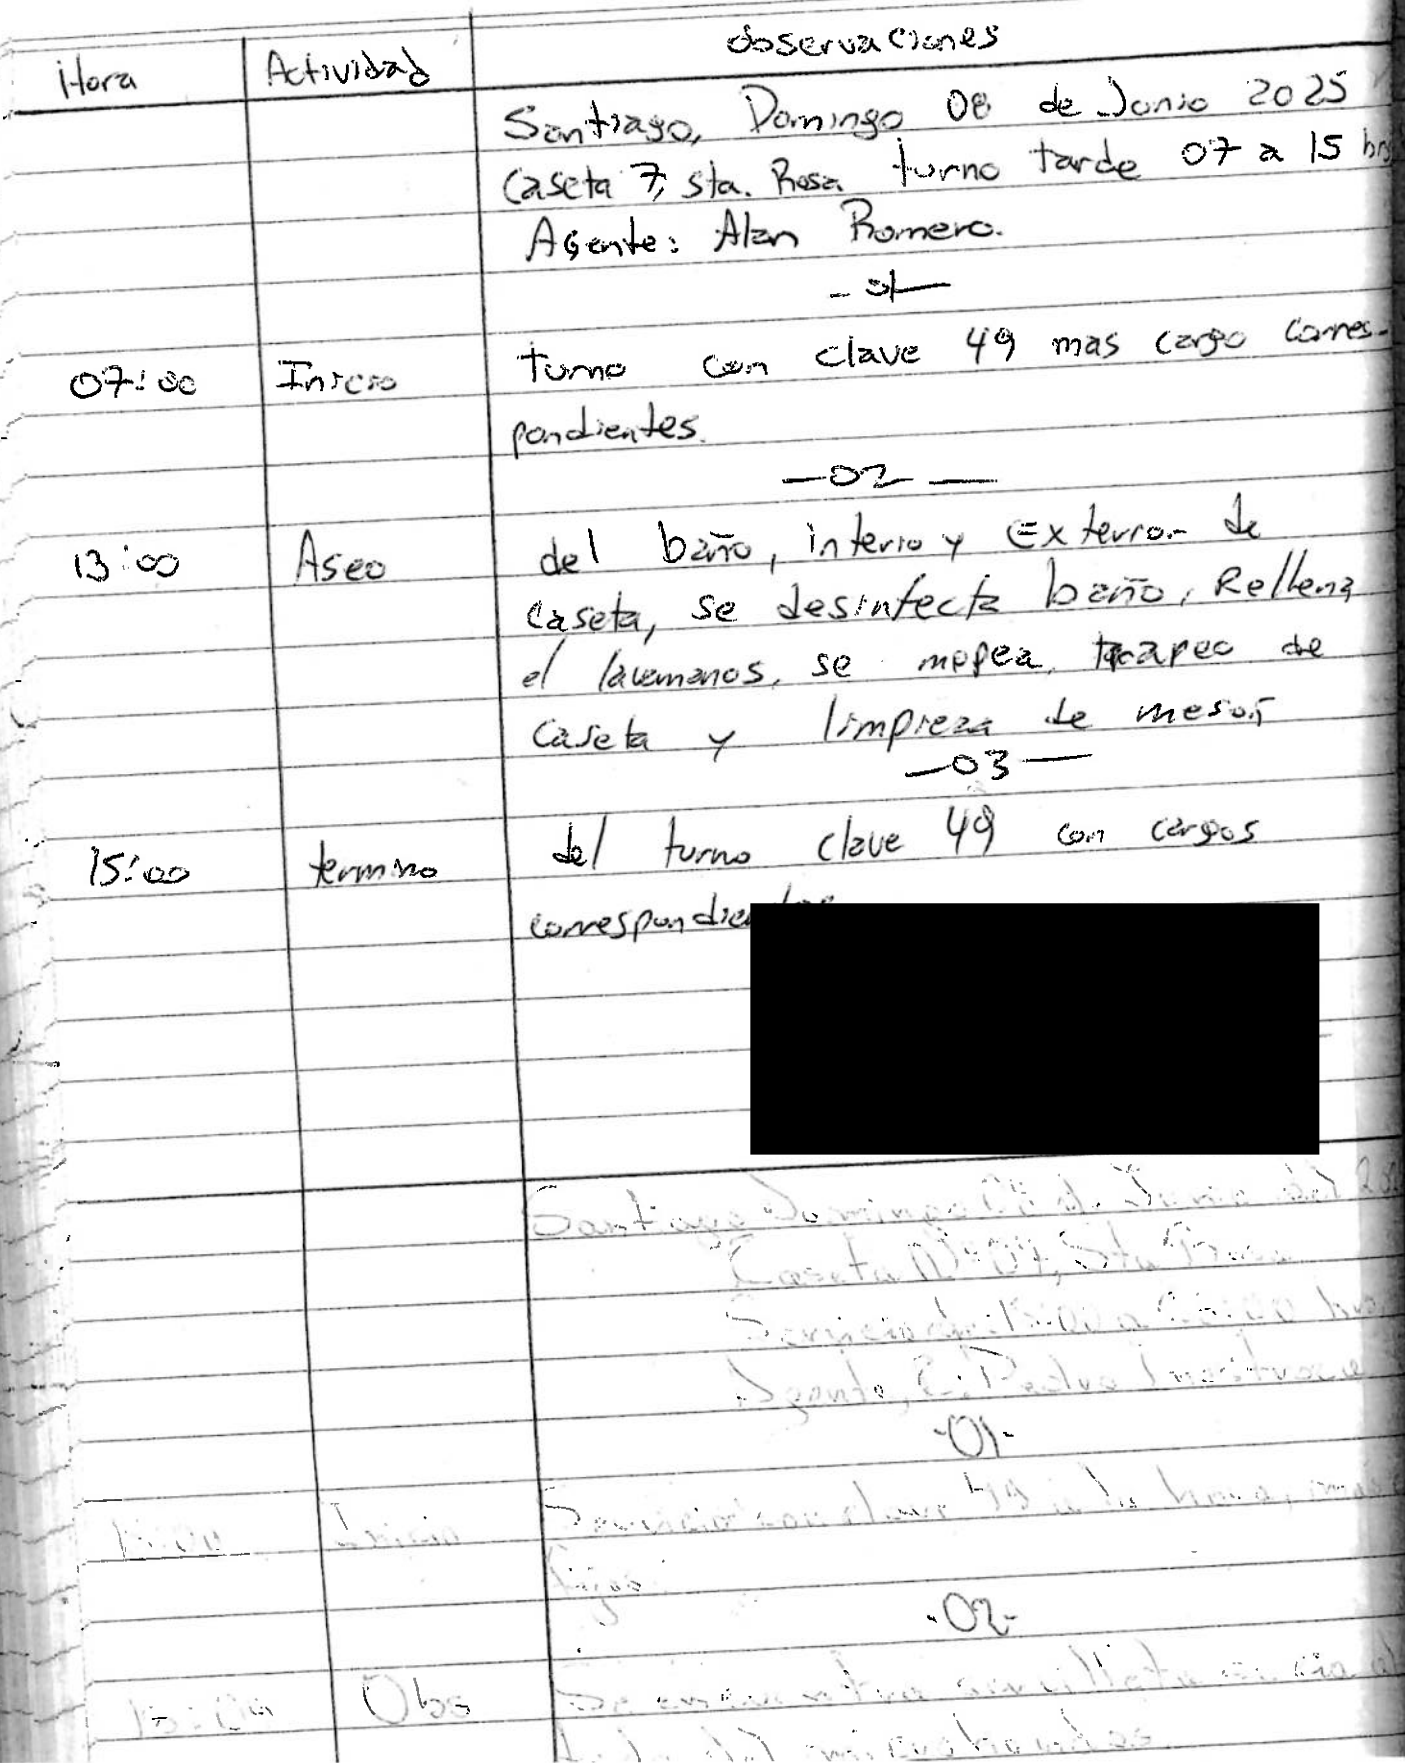 Hora Actividad observaciones
Santiago, Domingo 08 de Junio 2025
Caseta 7, sta. Rosa turno tarde 07 a 15 hrs
Agente: Alan Romero.
- 01 —
07:00 Inicio turno con clave 49 mas cargo corres-
pondientes.
— 02 —
13:00 Aseo del baño, interio y Exterior de
caseta, se desinfecta baño, Rellena
el lavamanos, se mopea, trapeo de
caseta y limpieza de meson
— 03 —
15:00 termino del turno clave 49 con cargos
Santiago Domingo de Junio del
Caseta N° 07, Sta Rosa
Servicio de 15:00 a hrs
Agente, Sr. Pedro
-01-
15:00 Inicio Servicio con clave 49 a la hora,
fijo.
-02-
Obs Se encuentra